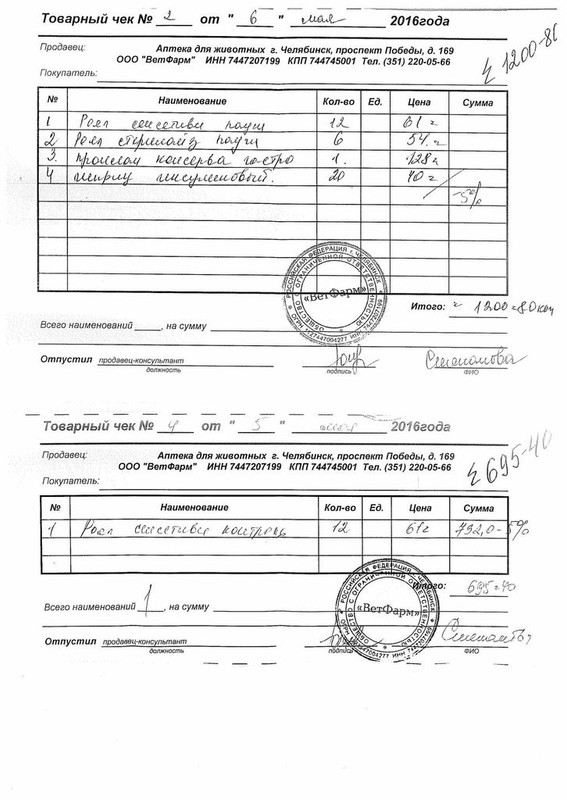 Товарный чек № 2 от " 6 " мая 2016года
Продавец: Аптека для животных г. Челябинск, проспект Победы, д. 169
ООО "ВетФарм" ИНН 7447207199 КПП 744745001 Тел. (351) 220-05-66
Покупатель:
Σ 1200-80
№ Наименование Кол-во Ед. Цена Сумма
1 Роял сенсетиви пауч 12 61=
2 Роял пауч 6 54=
3. консерва 1. 128=
4 20 40=
5%
Итого: = 1200=80 коп
Всего наименований , на сумму
Отпустил продавец-консультант Степанова
должность подпись ФИО
РОССИЙСКАЯ ФЕДЕРАЦИЯ г. ЧЕЛЯБИНСК
ОБЩЕСТВО С ОГРАНИЧЕННОЙ ОТВЕТСТВЕННОСТЬЮ
«ВетФарм»
Товарный чек № 4 от " 5 " мая 2016года
Продавец: Аптека для животных г. Челябинск, проспект Победы, д. 169
ООО "ВетФарм" ИНН 7447207199 КПП 744745001 Тел. (351) 220-05-66
Покупатель:
Σ 695-40
№ Наименование Кол-во Ед. Цена Сумма
1 Роял сенсетиви контроль 12 61= 732,0-5%
Итого: 695=40
Всего наименований 1 , на сумму
Отпустил продавец-консультант
должность подпись ФИО
РОССИЙСКАЯ ФЕДЕРАЦИЯ г. ЧЕЛЯБИНСК
ОБЩЕСТВО С ОГРАНИЧЕННОЙ ОТВЕТСТВЕННОСТЬЮ
«ВетФарм»